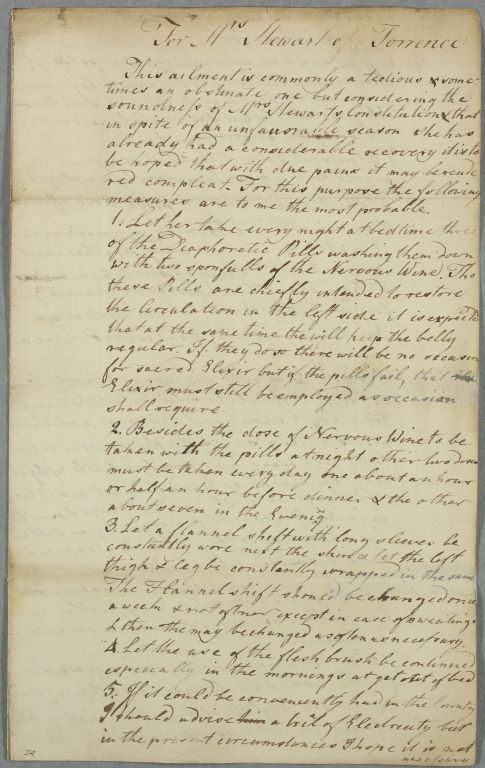 For Mrs Stewart of Torrence
This ailment is commonly a tedious & some-
times an obstinate one but considering the
soundness of Mrs Stewarts Constitution & that
in spite of an unfavorable season she has
already had a considerable recovery it is to
be hoped that with due pains it may be rende
red compleat. For this purpose the following
measures are to me the most probable.
1. Let her take every night at bedtime three
of the Diaphoretic Pills washing them down
with two sponfulls of the Nervous Wine. Tho
these Pills are chiefly intended to restore
the Circulation in the left side it is expected
that at the same time the will keep the belly
regular. If they do so there will be no occasion
for sacred Elixir but if the pills fail, that
Elixir must still be employed as occasion
shall require
2. Besides the dose of Nervous Wine to be
taken with the pills at night other two doses
must be taken every day one about an hour
or half an hour before dinner & the other
about seven in the Evening
3. Let a flannel shift with long sleeves be
constantly wore next the skin & let the left
thigh & leg be constantly wrapped in the same
The Flannel shift should be changed once
a week & not oftner except in case of sweating
& then the may be changed as often as necessary.
4. Let the use of the flesh brush be continued
especially in the mornings at get out of bed
5. If it could be conveniently had in the Country
I should advise a tril of Electricity but
in the present circumstances I hope it is not
necessary